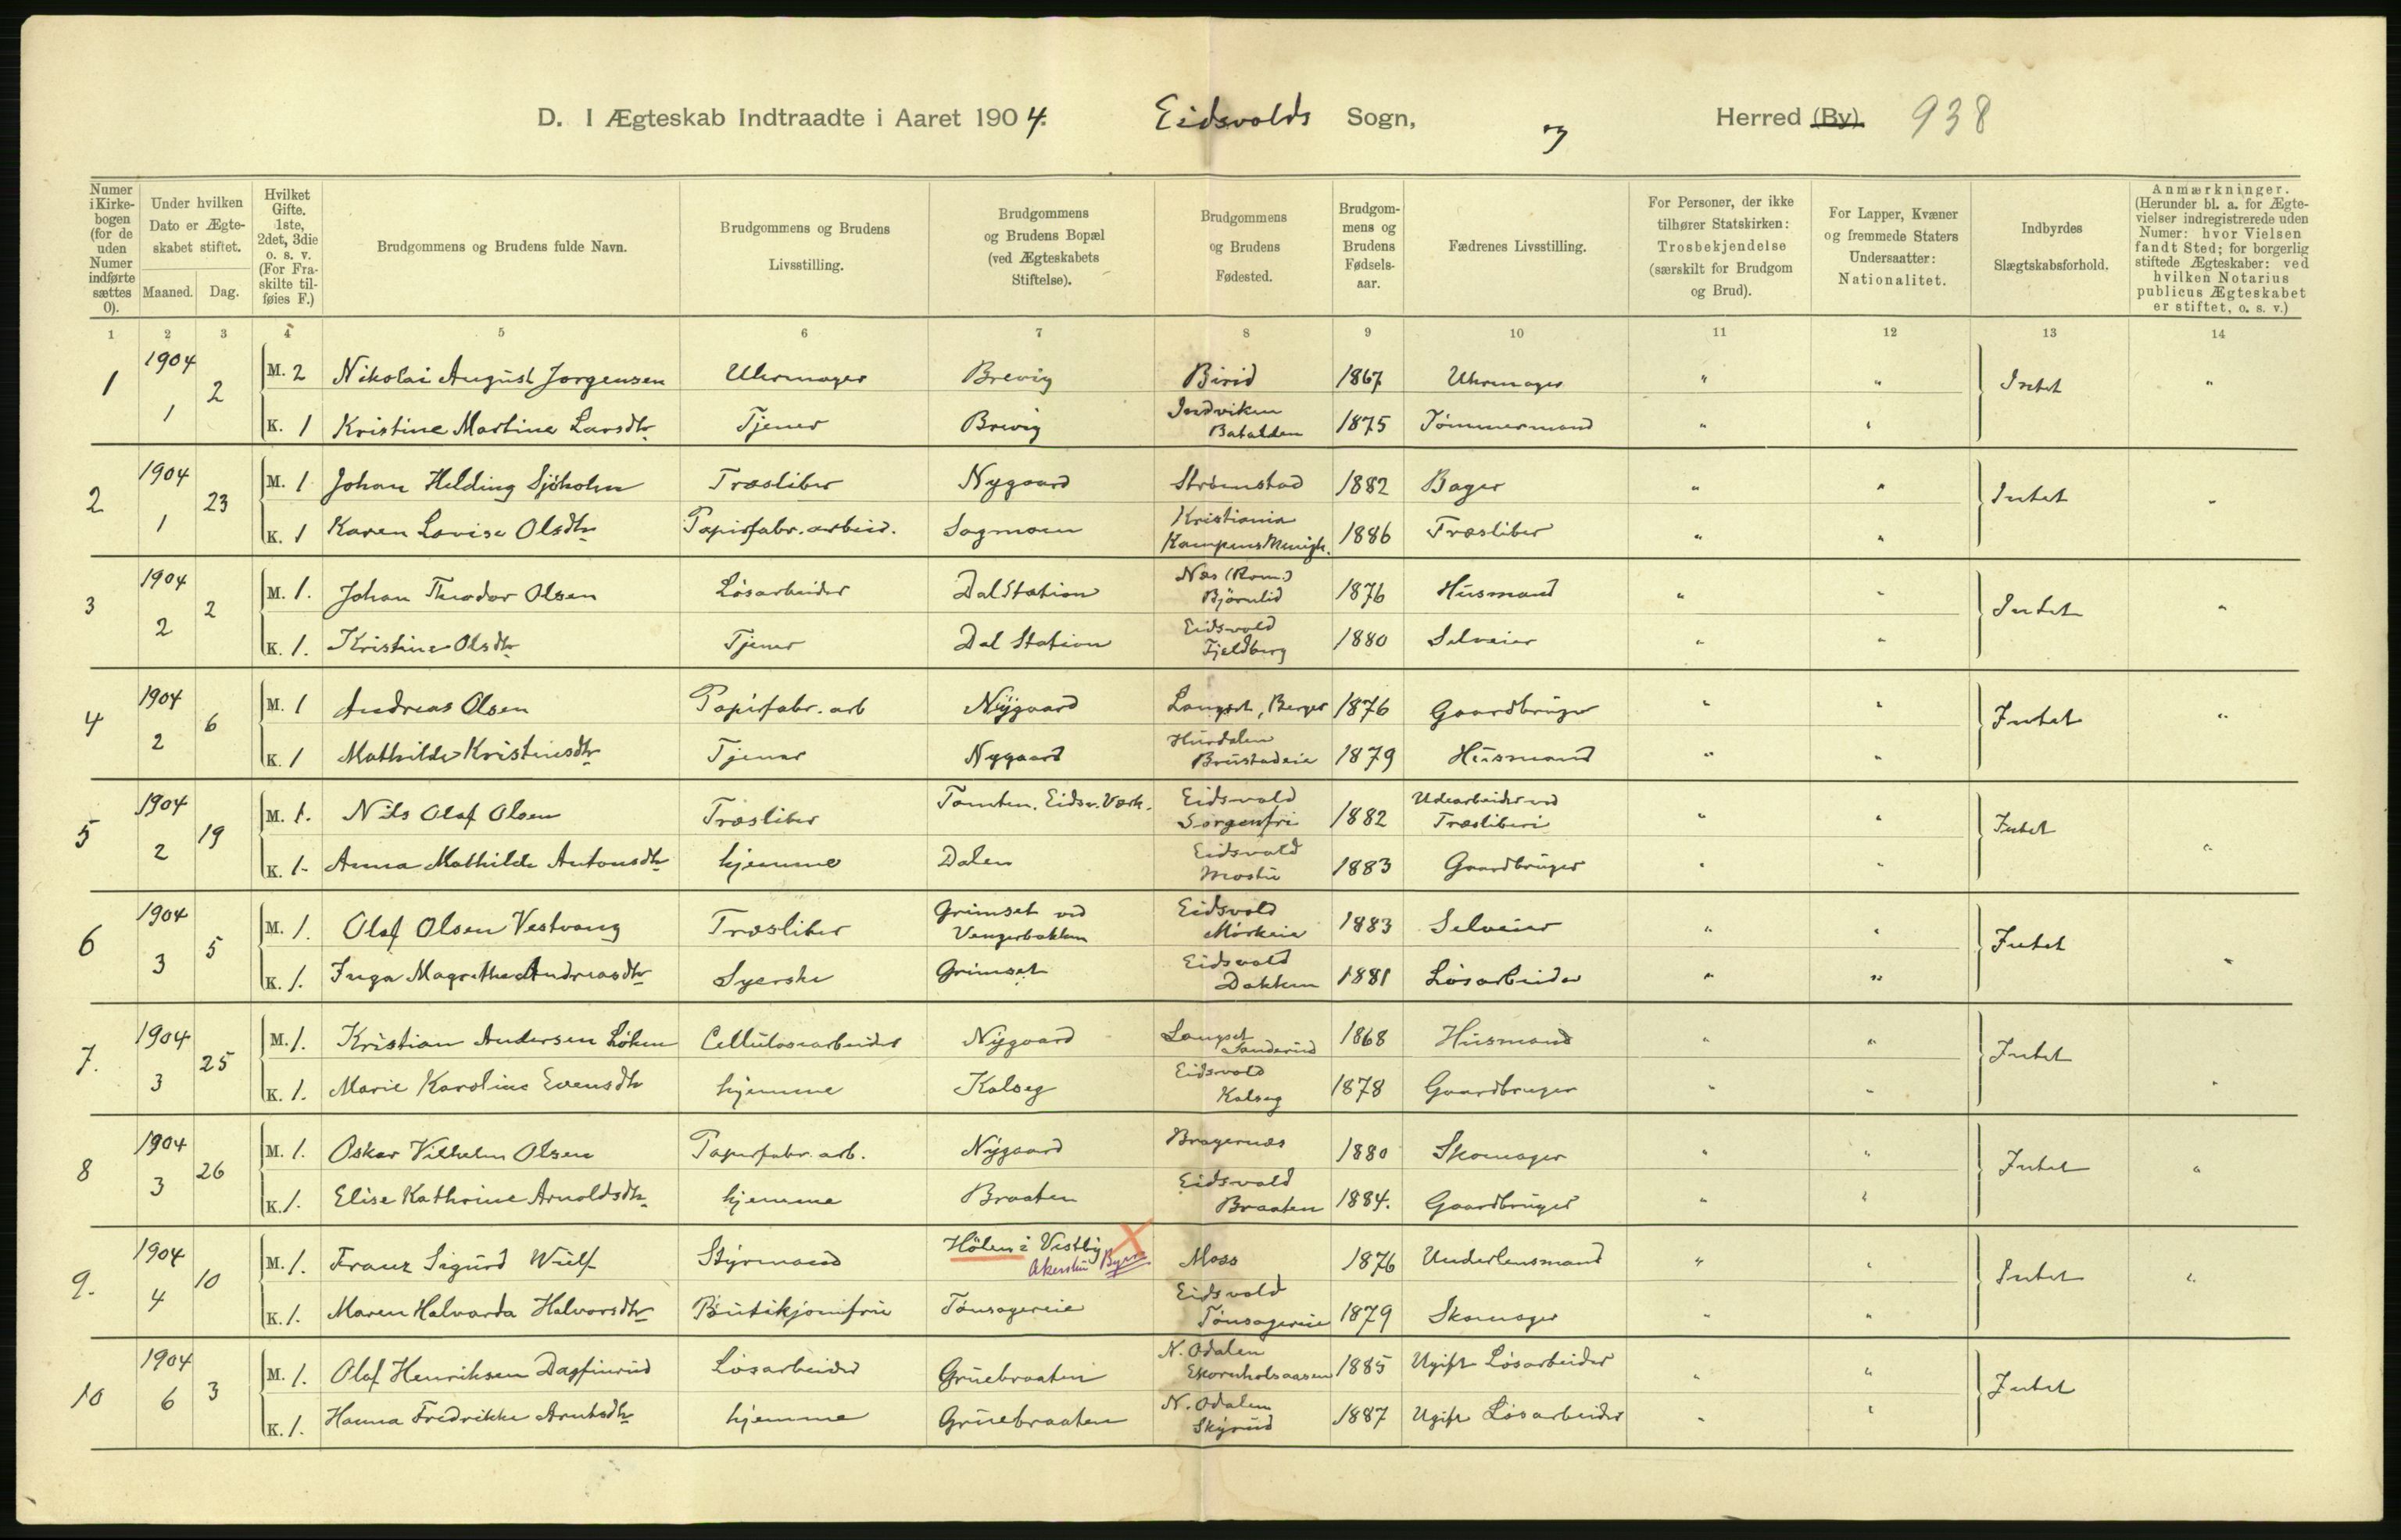 D. I Ægteskab Indtraadte i Aaret 1904. Eidsvolds Sogn, og Herred (By). 938
Numer i Kirke-bogen (for de uden Numer indførte sættes 0).
Under hvilken Dato er Ægte-skabet stiftet.
Maaned. Dag.
Hvilket Gifte. 1ste, 2det, 3die o. s. v. (For Fra-skilte til-føies F.)
Brudgommens og Brudens fulde Navn.
Brudgommens og Brudens Livsstilling.
Brudgommens og Brudens Bopæl (ved Ægteskabets Stiftelse).
Brudgommens og Brudens Fødested.
Brudgom-mens og Brudens Fødsels-aar.
Fædrenes Livsstilling.
For Personer, der ikke tilhører Statskirken: Trosbekjendelse (særskilt for Brudgom og Brud).
For Lapper, Kvæner og fremmede Staters Undersaatter: Nationalitet.
Indbyrdes Slægtskabsforhold.
Anmærkninger. (Herunder bl. a. for Ægte-vielser indregistrerede uden Numer: hvor Vielsen fandt Sted; for borgerlig stiftede Ægteskaber: ved hvilken Notarius publicus Ægteskabet er stiftet, o. s. v.)
1 2 3 4 5 6 7 8 9 10 11 12 13 14
1 1904 1 2 M. 2 Nikolai August Jorgensen Uhrmager Brevig Birid 1867 Uhrmager " " Intet "
K. 1 Kristine Martine Larsdtr. Tjener Brevig Indviken Batalden 1875 Tömmermand " "
2 1904 1 23 M. 1 Johan Helding Sjöholm Træsliber Nygaard Strömstad 1882 Bager " " Intet "
K. 1 Karen Lovise Olsdtr. Papirfabr. arbeid. Sagmoen Kristiania Kampens Menigh. 1886 Træsliber " "
3 1904 2 2 M. 1. Johan Theodor Olsen Lösarbeider Dal Station Næs (Rom.) Björnlid 1876 Husmand " " Intet "
K. 1. Kristine Olsdtr. Tjener Dal Station Eidsvold Fjeldberg 1880 Selveier " "
4 1904 2 6 M. 1 Andreas Olsen Papirfabr. arb Nygaard Langset, Berger 1876 Gaardbruger " " Intet "
K. 1 Mathilde Kristinsdtr. Tjener Nygaard Hurdalen Brustadeie 1879 Husmand " "
5 1904 2 19 M. 1. Nils Olaf Olsen Træsliber Tomten. Eidsv. Værk. Eidsvold Sorgenfri 1882 Udearbeider ved Træsliberi " " Intet "
K. 1. Anna Mathilde Antonsdtr hjemme Dalen Eidsvold Mostu 1883 Gaardbruger " "
6 1904 3 5 M. 1. Olaf Olsen Vestvang Træsliber Grimset ved Vengerbakken Eidsvold Mörkeie 1883 Selveier " " Intet "
K. 1. Inga Magrethe Andreasdtr. Syerske Grimset Eidsvold Dokken 1881 Lösarbeider " "
7. 1904 3 25 M. 1. Kristian Andersen Löken Cellulosearbeider Nygaard Langset Sanderud 1868 Husmand " " Intet "
K. 1. Marie Karoline Evensdtr hjemme Kalseg Eidsvold Kalseg 1878 Gaardbruger " "
8 1904 3 26 M. 1. Oskar Vilhelm Olsen Papirfabr. arb. Nygaard Bragernæs 1880 Skomager " " Intet "
K. 1. Elise Kathrine Arnoldsdtr. hjemme Braaten Eidsvold Braaten 1884. Gaardbruger " "
9. 1904 4 10 M. 1. Franz Sigurd Wulf Styrmand Hölen i Vestby Akershus Byer Moss 1876 Underlensmand " " Intet "
K. 1. Maren Halvarda Halvorsdtr. Butikjomfru Tönsagereie Eidsvold Tönsagereie 1879 Skomager " "
10 1904 6 3 M. 1. Olaf Henriksen Dagfinrud Lösarbeider Gruebraaten N. Odalen Ekornholsaasen 1885 Ugift Lösarbeider " " Intet
K. 1. Hanna Fredrikke Arntsdtr. hjemme Gruebraaten N. Odalen Skyrud 1887 Ugift Lösarbeider " "